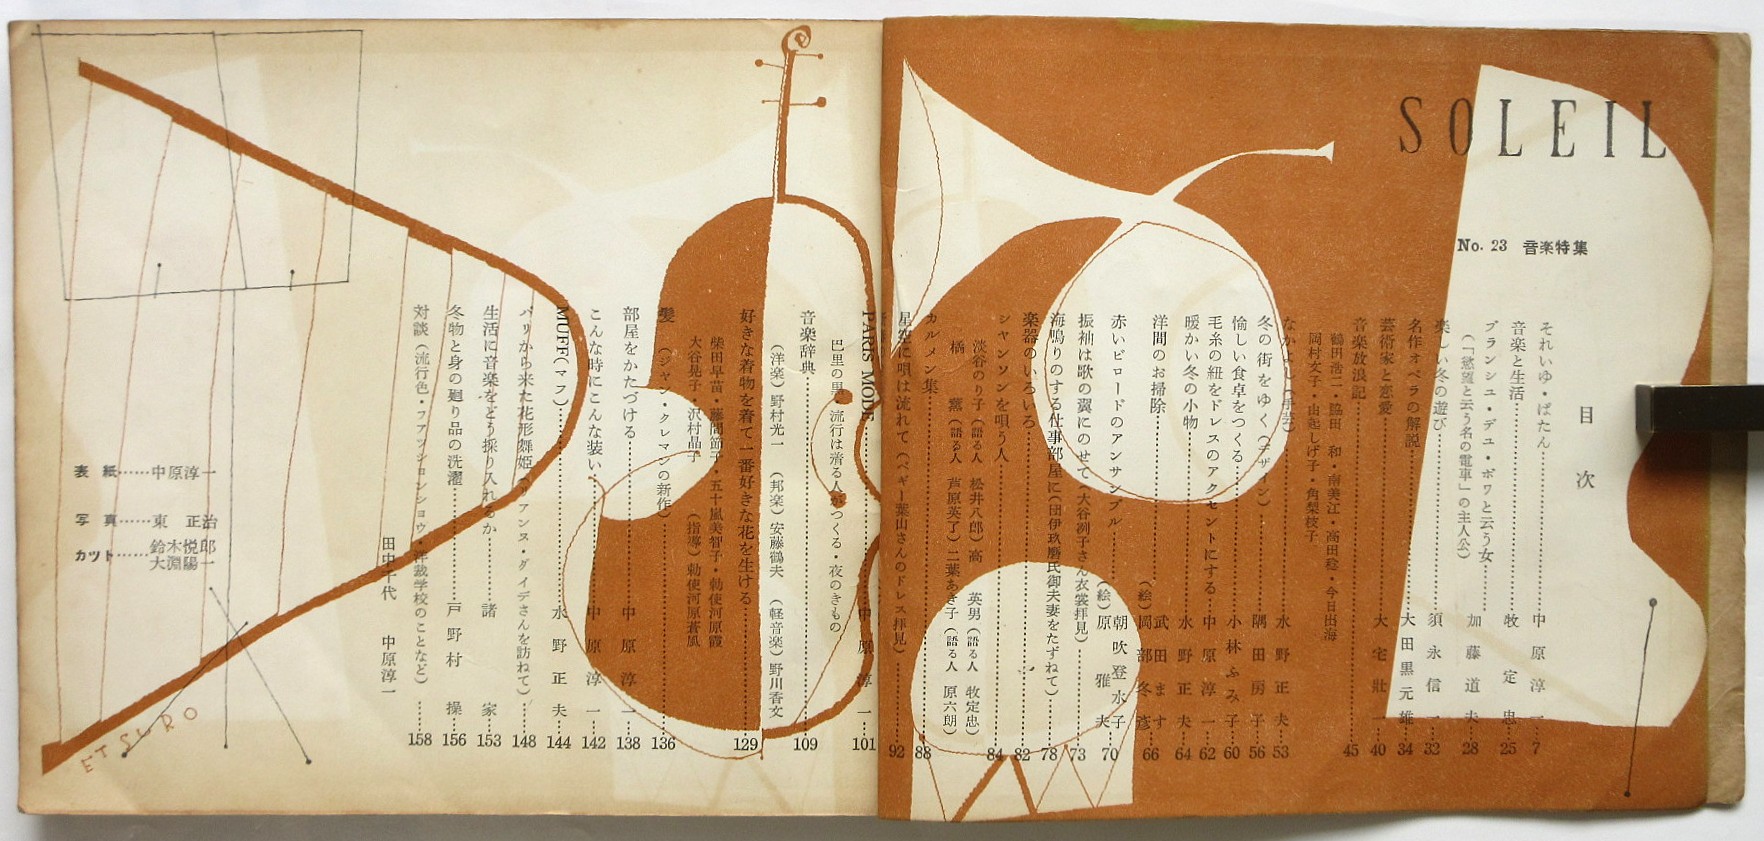 SOLEIL
No. 23 音楽特集
目次
それいゆ・ぱたん……中原淳一…7
音楽と生活……牧定忠…25
ブランシュ・デュ・ボワと云う女……加藤道夫…28
(「慾望と云う名の電車」の主人公)
楽しい冬の遊び……須永信一…32
名作オペラの解説……大田黒元雄…34
芸術家と恋愛……大宅壯一…40
音楽放浪記……45
鶴田浩二・脇田和・南美江・高田稔・今日出海
岡村文子・由起しげ子・角梨枝子
なかよし(手芸)……水野正夫…53
冬の街をゆく(デザイン)……隅田房子…56
愉しい食卓をつくる……小林ふみ子…60
毛糸の紐をドレスのアクセントにする……中原淳一…62
暖かい冬の小物……水野正夫…64
洋間のお掃除……武田ます
(絵)岡部冬彦…66
赤いビロードのアンサンブル……朝吹登水子
(絵)原雅夫…70
振袖は歌の翼にのせて(大谷冽子さん衣裳拝見)……73
海鳴りのする仕事部屋に(団伊玖磨氏御夫妻をたずねて)……78
楽器のいろいろ……82
シャンソンを唄う人……84
淡谷のり子(語る人 松井八郎)高 英男(語る人 牧定忠)
橘 薫(語る人 芦原英了)二葉あき子(語る人 原六朗)
カルメン集……88
星空に唄は流れて(ペギー葉山さんのドレス拝見)……92
PARIS MODE……中原淳一…101
巴里の黒・流行は着る人がつくる・夜のきもの
音楽辞典……109
(洋楽)野村光一 (邦楽)安藤鶴夫 (軽音楽)野川香文
好きな着物を着て一番好きな花を生ける……129
柴田早苗・藤間節子・五十嵐美智子・勅使河原霞
大谷晃子・沢村晶子 (指導)勅使河原蒼風
髪(ジャン・クレマンの新作)……136
部屋をかたづける……中原淳一…138
こんな時にこんな装い……中原淳一…142
MUFF(マフ)……水野正夫…144
パリから来た花形舞姫(リアンヌ・ダイデさんを訪ねて)……148
生活に音楽をどう採り入れるか……諸家…153
冬物と身の廻り品の洗濯……戸野村操…156
対談(流行色・ファッションショウ・洋裁学校のことなど)……158
田中千代 中原淳一
表紙……中原淳一
写真……東正治
カット……鈴木悦郎
大淵陽一
ETSURO